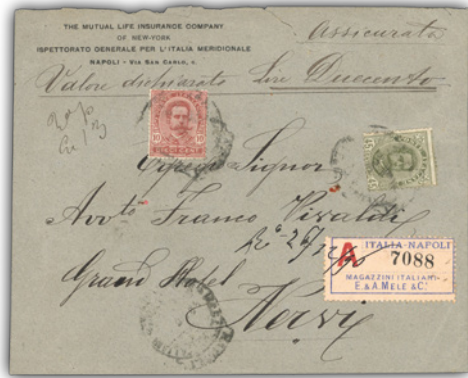 THE MUTUAL LIFE INSURANCE COMPANY
OF NEW-YORK
ISPETTORATO GENERALE PER L'ITALIA MERIDIONALE
NAPOLI - VIA SAN CARLO,
Assicurata
Valore dichiarato Lire Duecento
10 10
45 45
Egregio Signor
Avv.to Franco Vivaldi
Grand Hotel
Nervi
A ITALIA-NAPOLI
7088
MAGAZZINI ITALIANI
E. & A. MELE & C.